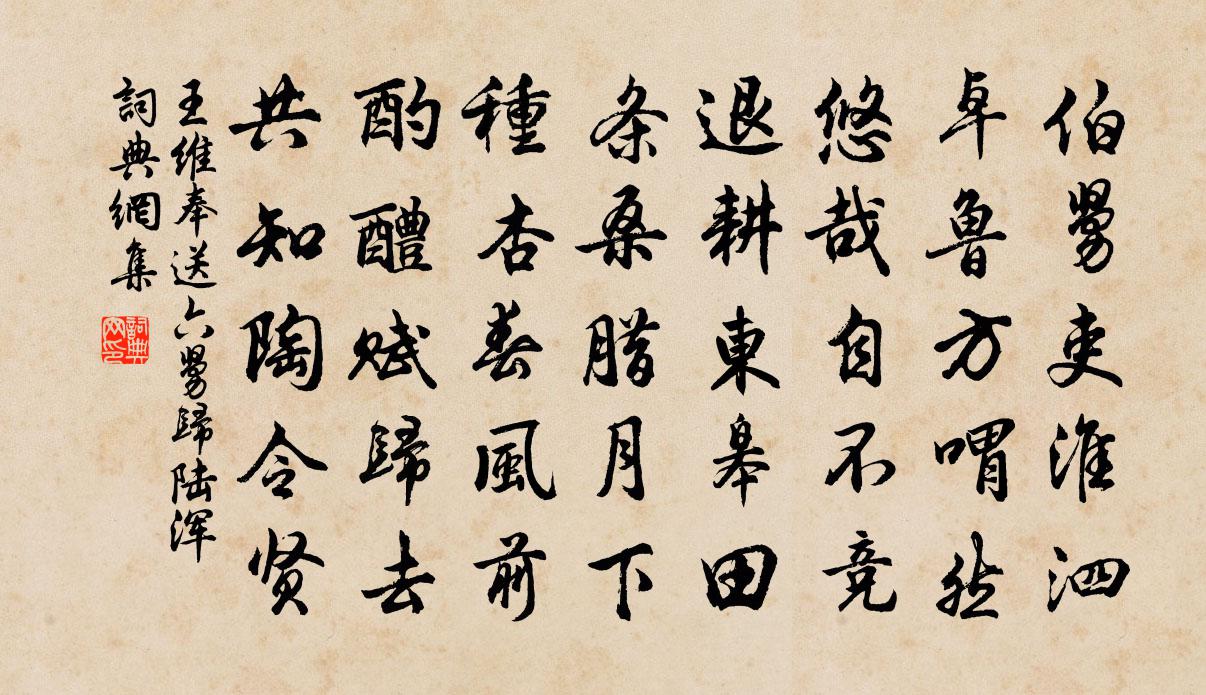 伯舅吏淮泗
卓魯方喟然
悠哉自不競
退耕東皋田
条桑腊月下
種杏春風前
酌醴赋歸去
共知陶令贤
王維奉送六舅歸陆浑
詞典網集
詞典网印